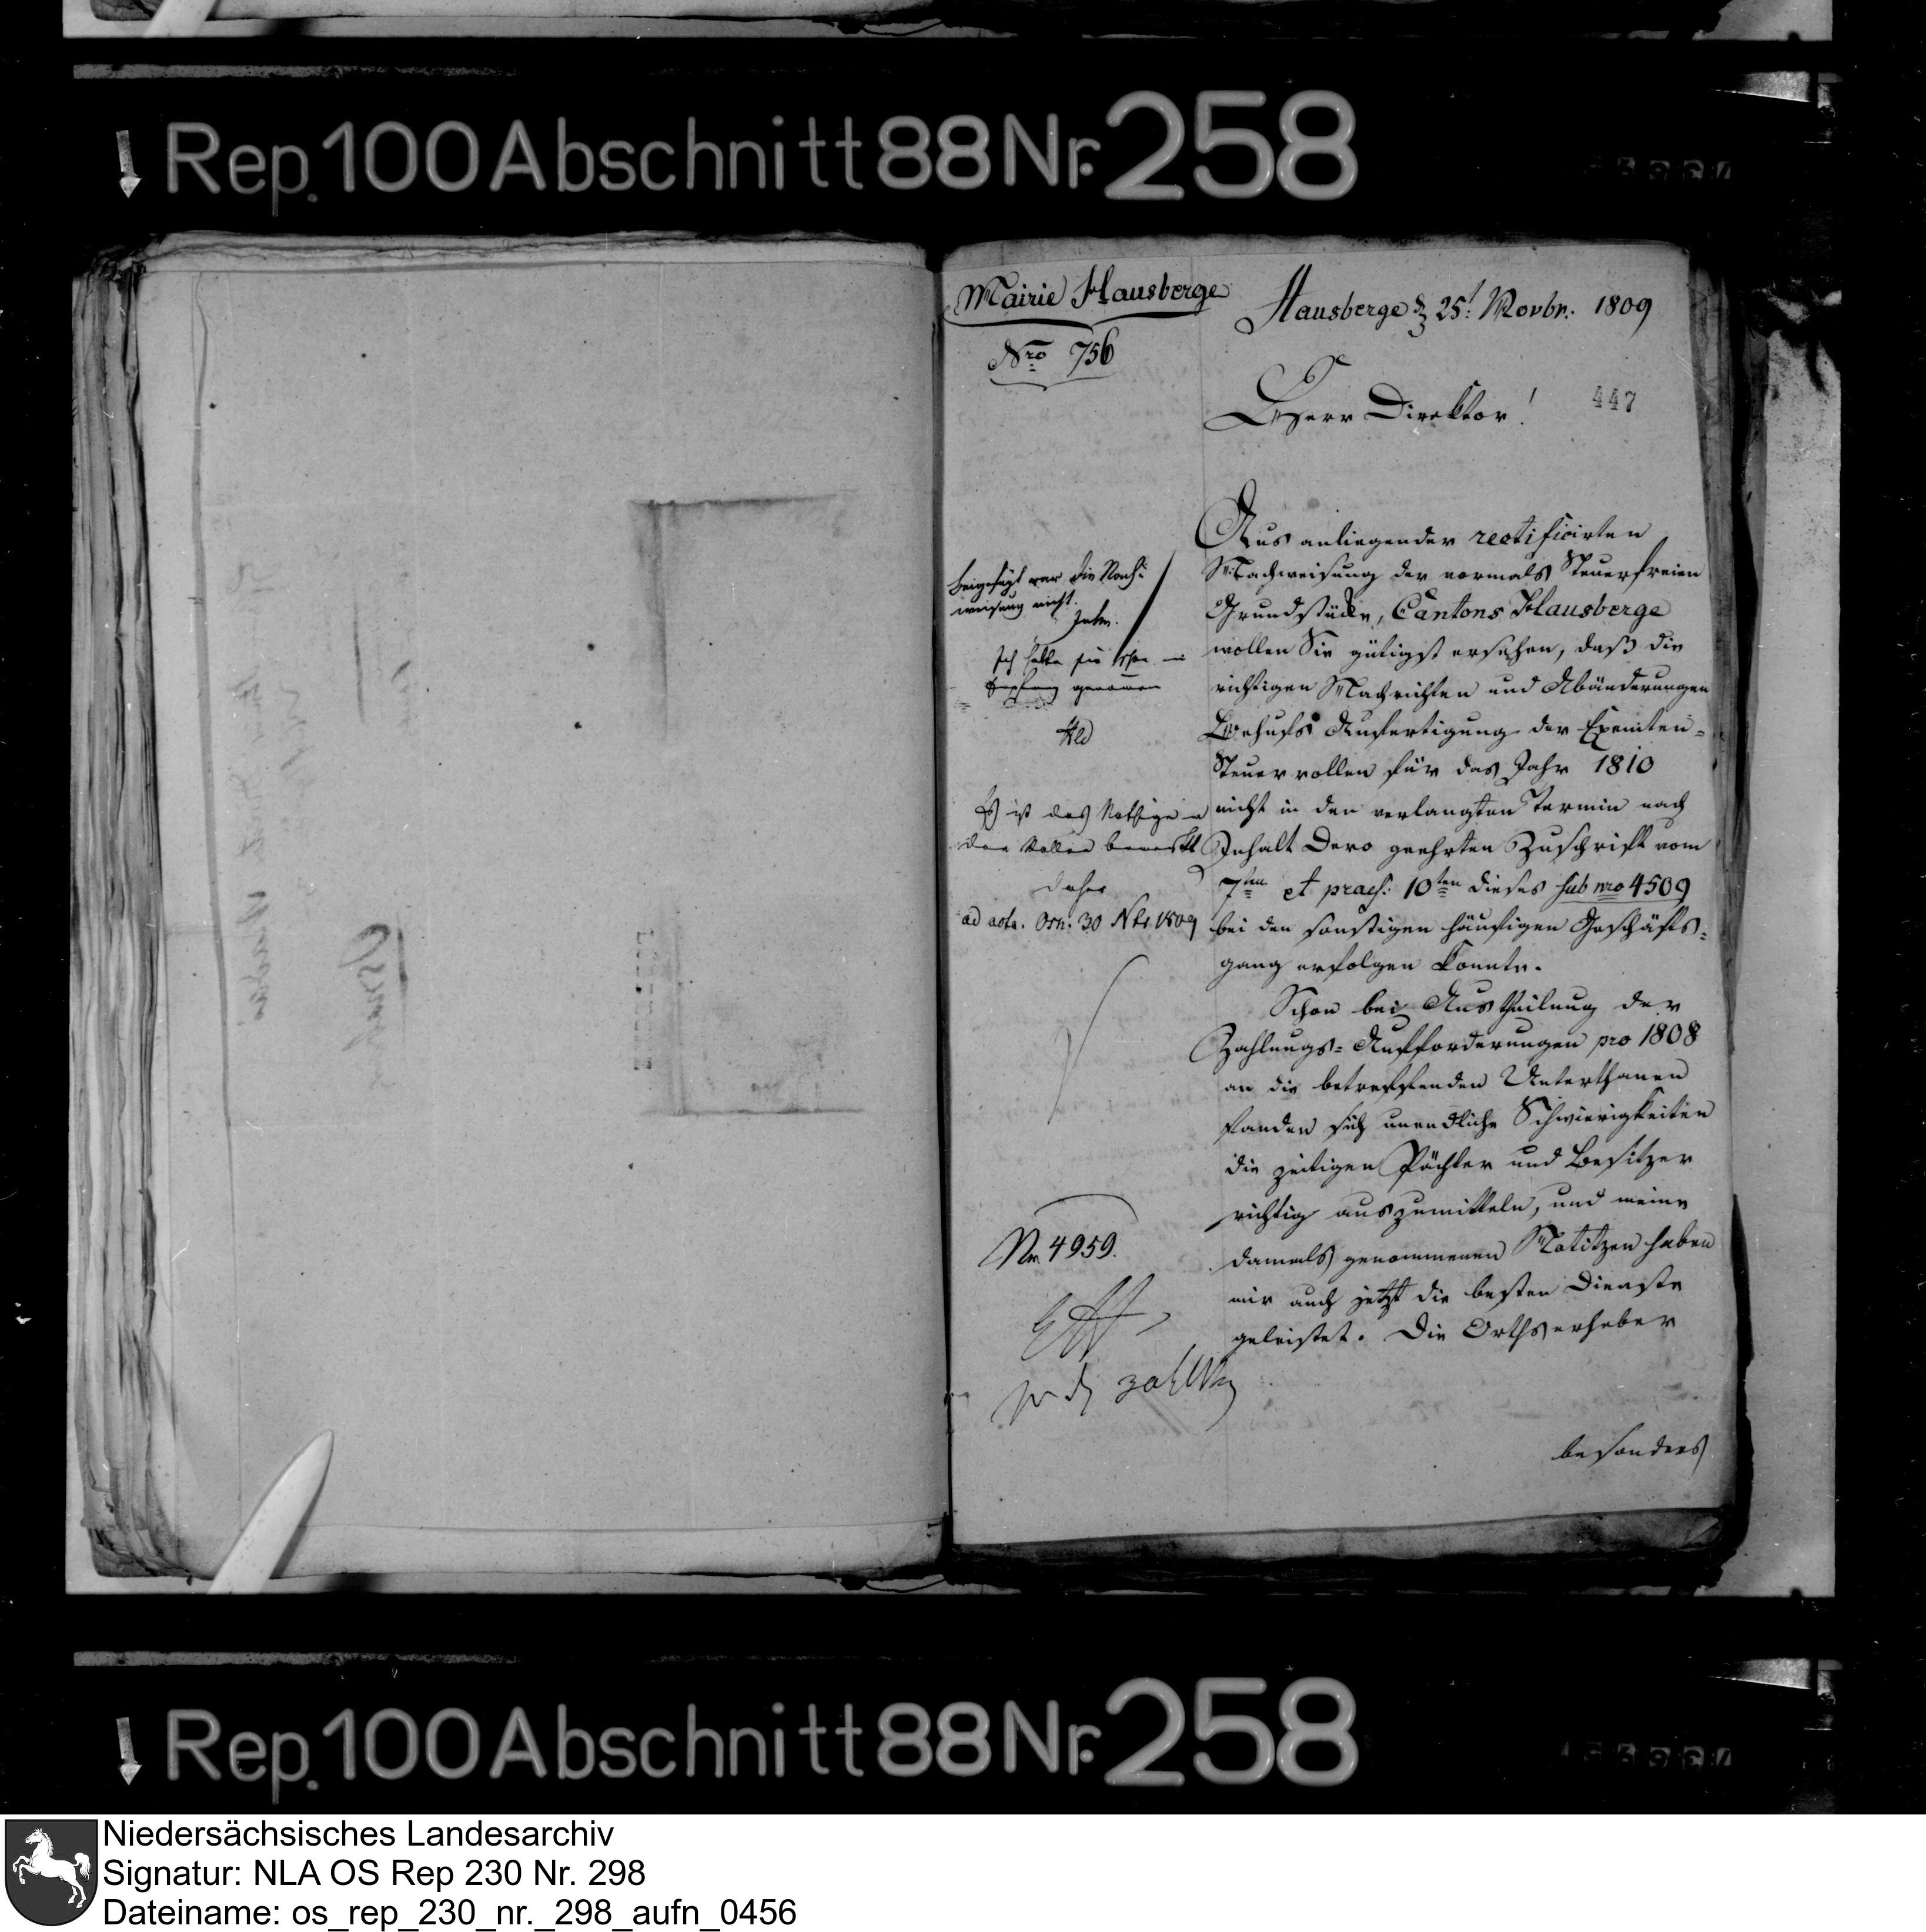 Rep. 100 Abschnitt 88 Nr. 258
Mairie Hausberge
Nro 756
Hausberge d 25t Novbr. 1809
Herr Direktor!
447
Aus anliegender rectificirten
Nachweisung der vormals Steuerfreien
Grundstücke, Cantons Hausberge
wollen Sie gütigst ersehen, daß die
richtigen Nachrichten und Abänderungen
Behufs Ausfertigung der Exemten-
Steuerrollen für das Jahr 1810
nicht in den verlangten Termin nach
Inhalt Dero geehrten Zuschrift vom
7ten et praes: 10ten dieses sub nro 4509
bei den sonstigen häufigen Geschäfts-
gang erfolgen konnte.
Schon bei Austheilung der
Zahlungs-Aufforderungen pro 1808
an die betreffenden Unterthanen
fanden sich unendliche Schwierigkeiten
die zeitigen Pächter und Besitzer
richtig auszumitteln, und meine
damals genommenen Notitzen haben
mir auch jetzt die besten Dienste
geleistet. Die Orthserheber
besonders
beigefügt war die Nach-
weisung nicht.
Ich habe sie schon in
Empfang genommen
Es ist das Nöthige in
den Rollen bemerkt
daher
ad acta. Osn: 30 Nbr 1809
Nr. 4959.
Rep. 100 Abschnitt 88 Nr. 258
Niedersächsisches Landesarchiv
Signatur: NLA OS Rep 230 Nr. 298
Dateiname: os_rep_230_nr._298_aufn_0456